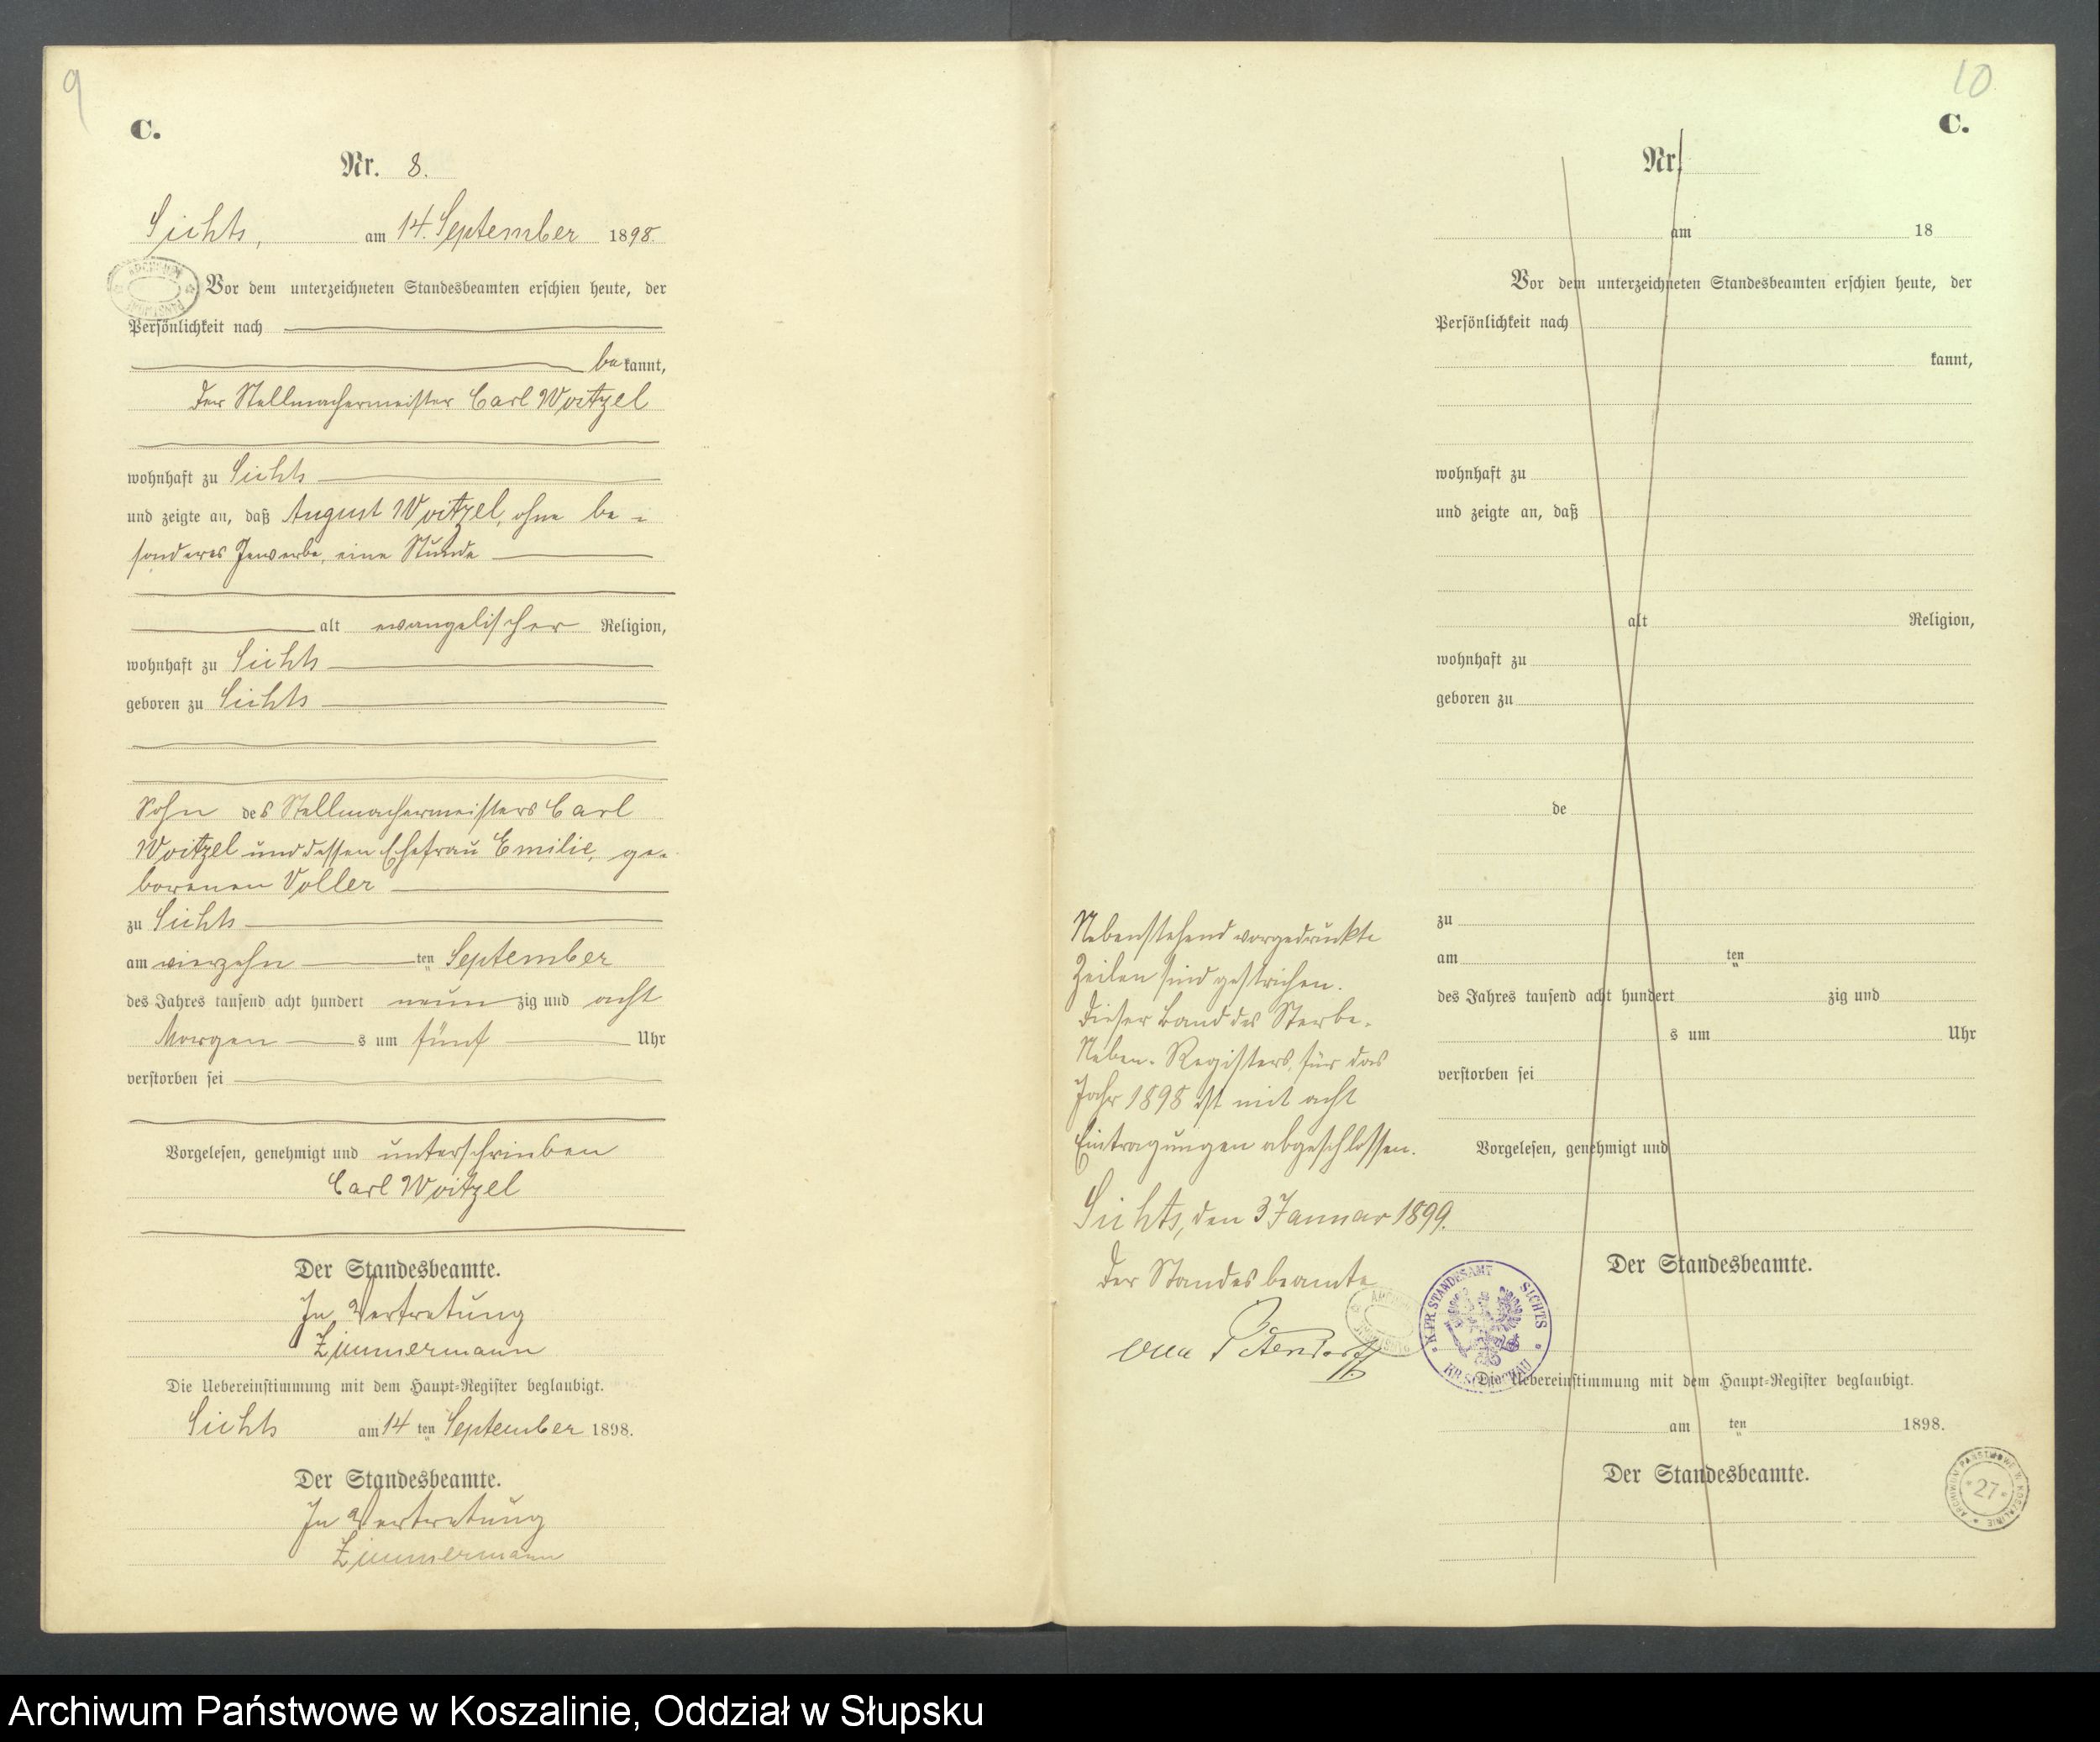 9
C.
Nr. 8.
Sichts, am 14. September 1898.
Vor dem unterzeichneten Standesbeamten erschien heute, der
Persönlichkeit nach
bekannt,
der Stellmachermeister Carl Woitzel
wohnhaft zu Sichts
und zeigte an, daß August Woitzel, ohne be-
sonderes Gewerbe, eine Stunde
alt evangelischer Religion,
wohnhaft zu Sichts
geboren zu Sichts
Sohn des Stellmachermeisters Carl
Woitzel und dessen Ehefrau Emilie, ge-
borenen Voller
zu Sichts
am vierzehnten September
des Jahres tausend acht hundert neunzig und acht
Morgens um fünf Uhr
verstorben sei
Vorgelesen, genehmigt und unterschrieben
Carl Woitzel
Der Standesbeamte.
In Vertretung
Zimmermann
Die Uebereinstimmung mit dem Haupt=Register beglaubigt.
Sichts am 14 ten September 1898.
Der Standesbeamte.
In Vertretung
Zimmermann
10
C.
Nr.
am 18
Vor dem unterzeichneten Standesbeamten erschien heute, der
Persönlichkeit nach
kannt,
wohnhaft zu
und zeigte an, daß
alt Religion,
wohnhaft zu
geboren zu
de
zu
am ten
des Jahres tausend acht hundert zig und
s um Uhr
verstorben sei
Vorgelesen, genehmigt und
Der Standesbeamte.
Die Uebereinstimmung mit dem Haupt=Register beglaubigt.
am ten 1898.
Der Standesbeamte.
Nebenstehend vorgedruckte
Zeilen sind gestrichen.
Dieser Band des Sterbe-
Neben-Registers für das
Jahr 1898 ist mit acht
Eintragungen abgeschlossen.
Sichts, den 3 Januar 1899.
Der Standesbeamte
K. PR. STANDESAMT SICHTS
KR. SCHLOCHAU
ARCHIWUM PAŃSTWOWE W KOSZALINIE
27
Archiwum Państwowe w Koszalinie, Oddział w Słupsku